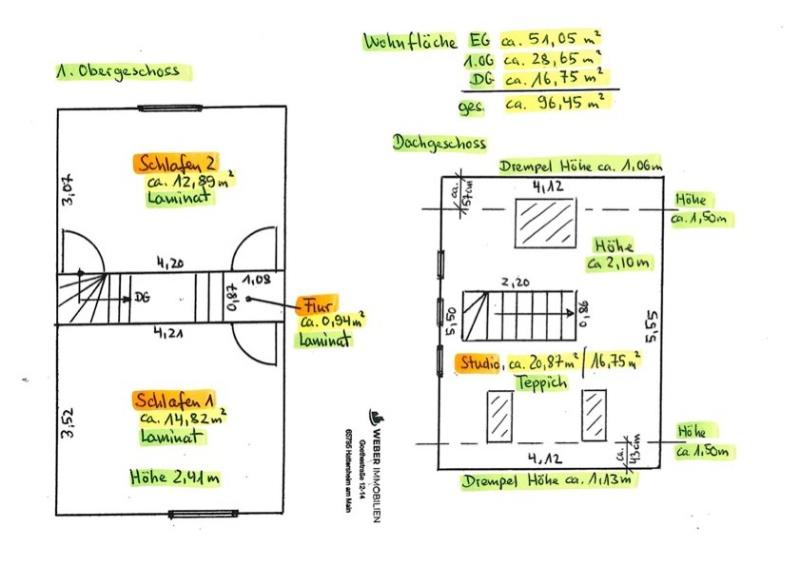 Wohnfläche EG ca. 51,05 m²
1.OG ca. 28,65 m²
DG ca. 16,75 m²
ges. ca. 96,45 m²
1. Obergeschoss
Schlafen 2
ca. 12,89 m²
Laminat
3,07
4,20
DG
0,87
1,08
Flur
ca. 0,94 m²
Laminat
4,21
Schlafen 1
ca. 14,82 m²
Laminat
3,52
Höhe 2,41m
WEBER IMMOBILIEN
Goethestraße 12-14
65795 Hattersheim am Main
Dachgeschoss
Drempel Höhe ca. 1,06m
ca. 57cm
4,12
Höhe
ca. 1,50m
Höhe
ca 2,10m
2,20
5,50
0,86
5,55
Studio, ca. 20,87m² / 16,75 m²
Teppich
Höhe
ca 1,50m
4,12
ca. 43cm
Drempel Höhe ca. 1,13m